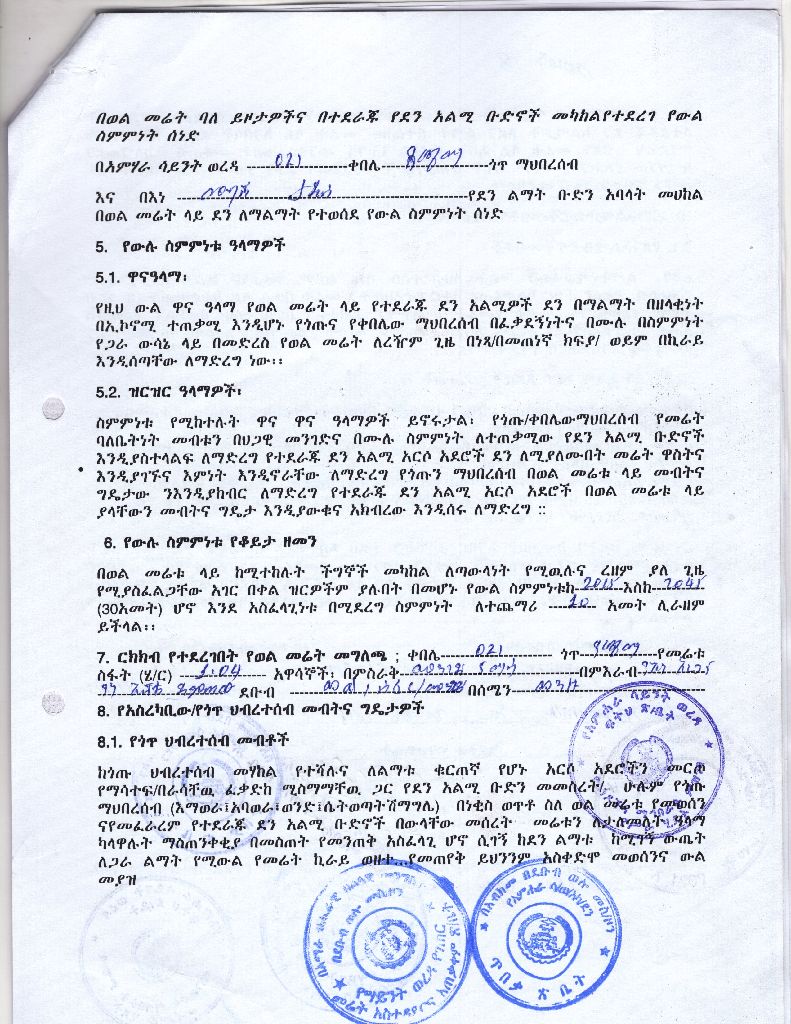 በወል መሬት ባለ ይዞታዎችና በተደራጁ የደን አልሚ ቡድኖች መካከልየተደረገ የውል
ስምምነት ሰነድ
በአምሃራ ሳይንት ወረዳ 021 ቀበሌ ጎጥ ማህበረሰብ
እና በእነ የደን ልማት ቡድን አባላት መሀከል
በወል መሬት ላይ ደን ለማልማት የተወሰደ የውል ስምምነት ሰነድ
5. የውሉ ስምምነቱ ዓላማዎች
5.1. ዋናዓላማ፡
የዚህ ውል ዋና ዓላማ የወል መሬት ላይ የተደራጁ ደን አልሚዎች ደን በማልማት በዘላቂነት
በኢኮኖሚ ተጠቃሚ እንዲሆኑ የጎጡና የቀበሌው ማህበረሰብ በፈቃደኝነትና በሙሉ በስምምነት
የጋራ ውሳኔ ላይ በመድረስ የወል መሬት ለረዥም ጊዜ በነጻ/በመጠነኛ ክፍያ/ ወይም በኪራይ
እንዲሰጣቸው ለማድረግ ነው፡፡
5.2. ዝርዝር ዓላማዎች፡
ስምምነቱ የሚከተሉት ዋና ዋና ዓላማዎች ይኖሩታል፡ የጎጡ/ቀበሌውማህበረሰብ የመሬት
ባለቤትነት መብቱን በህጋዊ መንገድና በሙሉ ስምምነት ለተጠቃሚው የደን አልሚ ቡድኖች
እንዲያስተላልፍ ለማድረግ የተደራጁ ደን አልሚ አርሶ አደሮች ደን ለሚያለሙበት መሬት ዋስትና
እንዲያገኙና እምነት እንዲኖራቸው ለማድረግ የጎጡን ማህበረሰብ በወል መሬቱ ላይ መብትና
ግዴታው ንእንዲያከብር ለማድረግ የተደራጁ ደን አልሚ አርሶ አደሮች በወል መሬቱ ላይ
ያላቸውን መብትና ግዴታ እንዲያውቁና አክብረው እንዲሰሩ ለማድረግ ::
6. የውሉ ስምምነቱ የቆይታ ዘመን
በወል መሬቱ ላይ ከሚተከሉት ችግኞች መካከል ለጣውላነት የሚዉሉና ረዘም ያለ ጊዜ
የሚያስፈልጋቸው አገር በቀል ዝርዎችም ያሉበት በመሆኑ የውል ስምምነቱከ 2015 እስከ 2045
(30አመት) ሆኖ እንደ አስፈላጊነቱ በሚደረግ ስምምነት ለተጨማሪ 10 አመት ሊራዘም
ይችላል፡፡
7. ርክክብ የተደረገበት የወል መሬት መግለጫ ; ቀበሌ 021 ጎጥ የመሬቱ
ስፋት (ሄ/ር) 1.04 አዋሳኞች፡ በምስራት በምእራብ
ደቡብ በሰሜን
8. የአስረካቢው/የጎጥ ህብረተሰብ መብትና ግዴታዎች
8.1. የጎጥ ህብረተሰብ መብቶች
ከጎጡ ህብረተሰብ መሃከል የተሻሉና ለልማቱ ቁርጠኛ የሆኑ አርሶ አደሮችን መርጦ
የማሳተፍ/በራሳቸዉ ፈቃድክ ሚስማማቸዉ ጋር የደን አልሚ ቡድን መመስረት/ ሁሉም የጎጡ
ማህበረሰብ (እማወራ፤አባወራ፣ወንድ፤ሴትወጣትሽማግሌ) በነቂስ ወጥቶ ስለ ወል መሬቱ የመወሰን
ናየመፈራረም የተደራጁ ደን አልሚ ቡድኖች በውላቸው መሰረት መሬቱን ለታለመለት ዓላማ
ካላዋሉት ማስጠንቀቂያ በመስጠት የመንጠቅ አስፈላጊ ሆኖ ሲገኝ ከደን ልማቱ ከሚገኝ ውጤት
ለጋራ ልማት የሚውል የመሬት ኪራይ ወዘተ...የመጠየቅ ይህንንም አስቀድሞ መወሰንና ውል
መያዝ
የአምሐራ ሳይንት ወረዳ
ፍትህ ጽ/ቤት
ጥበቃ ጽ ቤት